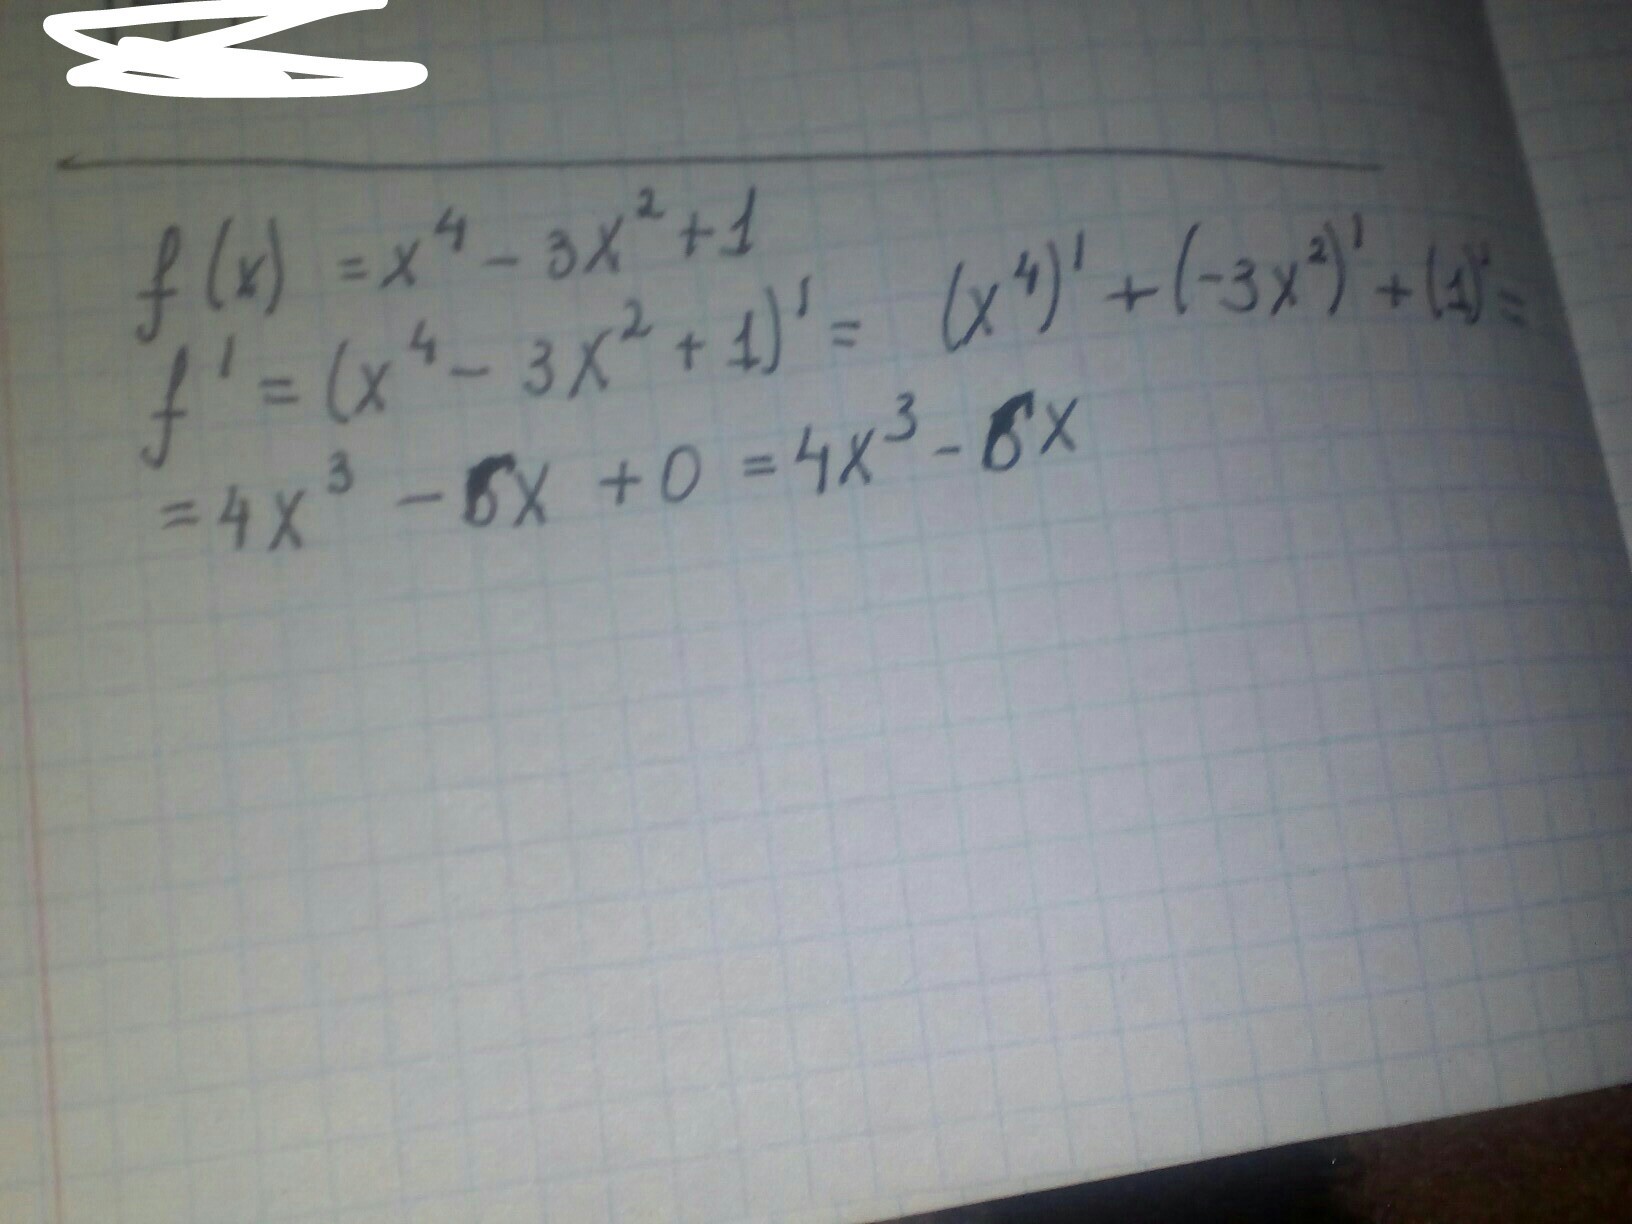 f(x) = x⁴ - 3x² + 1
f' = (x⁴ - 3x² + 1)' = (x⁴)' + (-3x²)' + (1)' =
= 4x³ - 6x + 0 = 4x³ - 6x